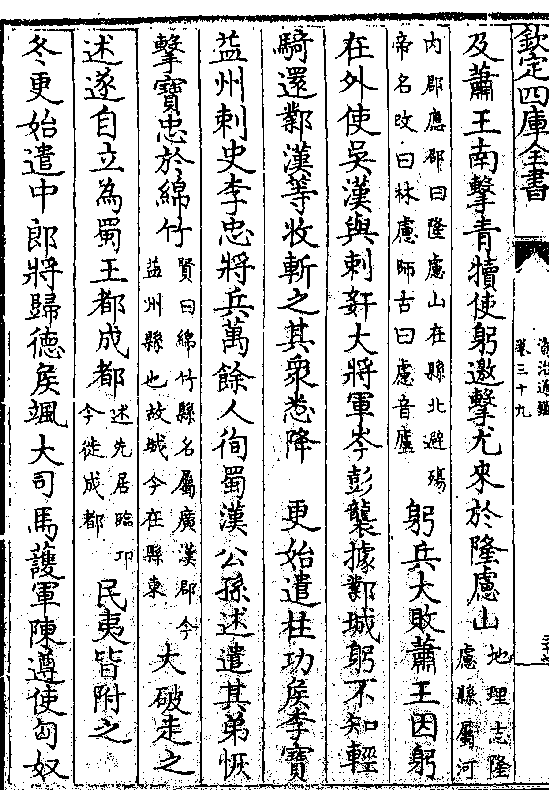 欽定四庫全書
資治通鑑
卷三十九
及蕭王南擊青犢使躬邀擊尤来於隆慮山地理志隆慮縣屬河
内郡應邵曰隆慮山在縣北避殤帝名改曰林慮師古曰慮音廬躬兵大敗蕭王因躬
在外使吳漢與刺姦大將軍岑彭襲據鄴城躬不知輕
騎還鄴漢等收斬之其衆悉降 更始遣柱功侯李寶
益州刺史李忠將兵萬餘人徇蜀漢公孫述遣其弟恢
擊寶忠於綿竹賢曰綿竹縣名屬廣漢郡今益州縣也故城今在縣東大破走之
述遂自立為蜀王都成都述先居臨卭今徙成都民夷皆附之
冬更始遣中郎將歸德侯颯大司馬護軍陳遵使匈奴